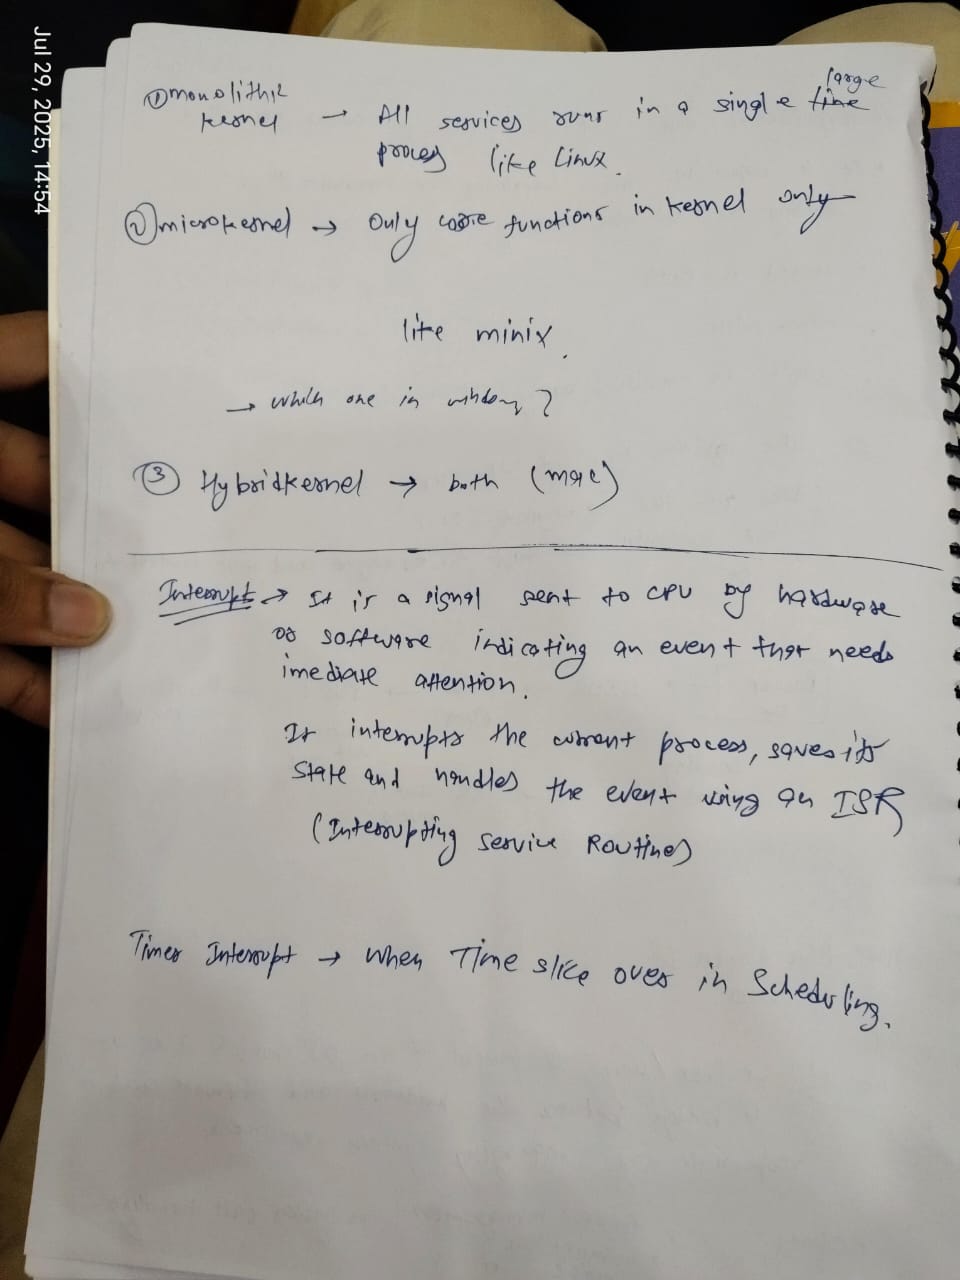 Jul 29, 2025, 14:54
① monolithic kernel → All services runs in a single large time
process like Linux.
② microkernel → Only core functions in kernel only
like minix.
→ which one in window?
③ Hybridkernel → both (mac)
Interrupt → It is a signal sent to CPU by hardware
or software indicating an event that needs
imediate attention.
It interrupts the current process, saves its
state and handles the event using an ISR
(Interrupting service Routines)
Timer Interrupt → when Time slice over in Scheduling.